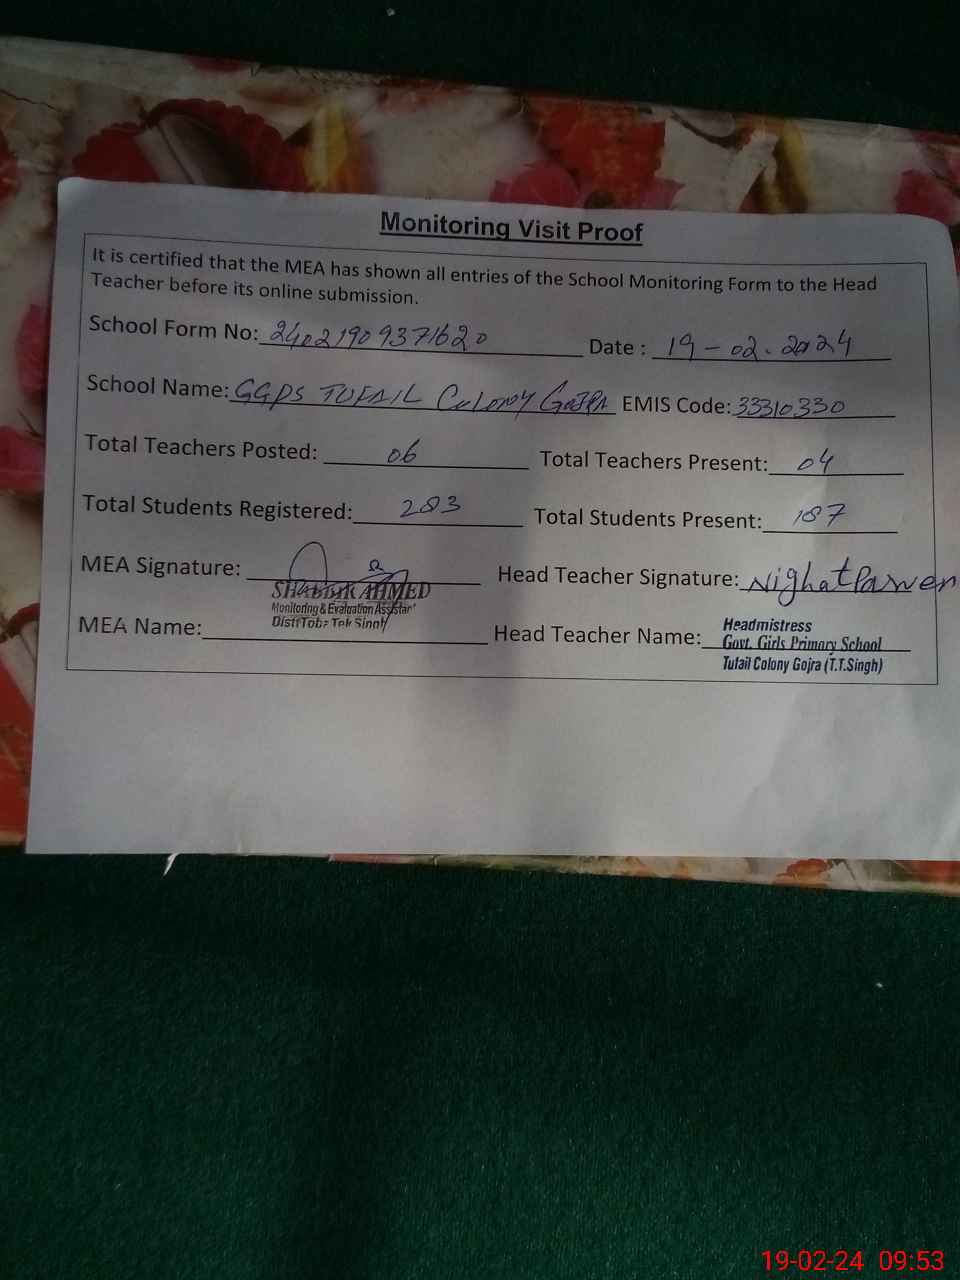 Monitoring Visit Proof
It is certified that the MEA has shown all entries of the School Monitoring Form to the Head
Teacher before its online submission.
School Form No: 24021909371620 Date : 19-02-2024
School Name: GGPS TUFAIL Colony GOJRA EMIS Code: 33310330
Total Teachers Posted: 06 Total Teachers Present: 04
Total Students Registered: 283 Total Students Present: 187
MEA Signature: Head Teacher Signature: Nighat Parven
SHABBIR AHMED
Monitoring & Evaluation Assistant
Distt Toba Tek Singh
MEA Name: Head Teacher Name:
Headmistress
Govt. Girls Primary School
Tufail Colony Gojra (T.T.Singh)
19-02-24 09:53